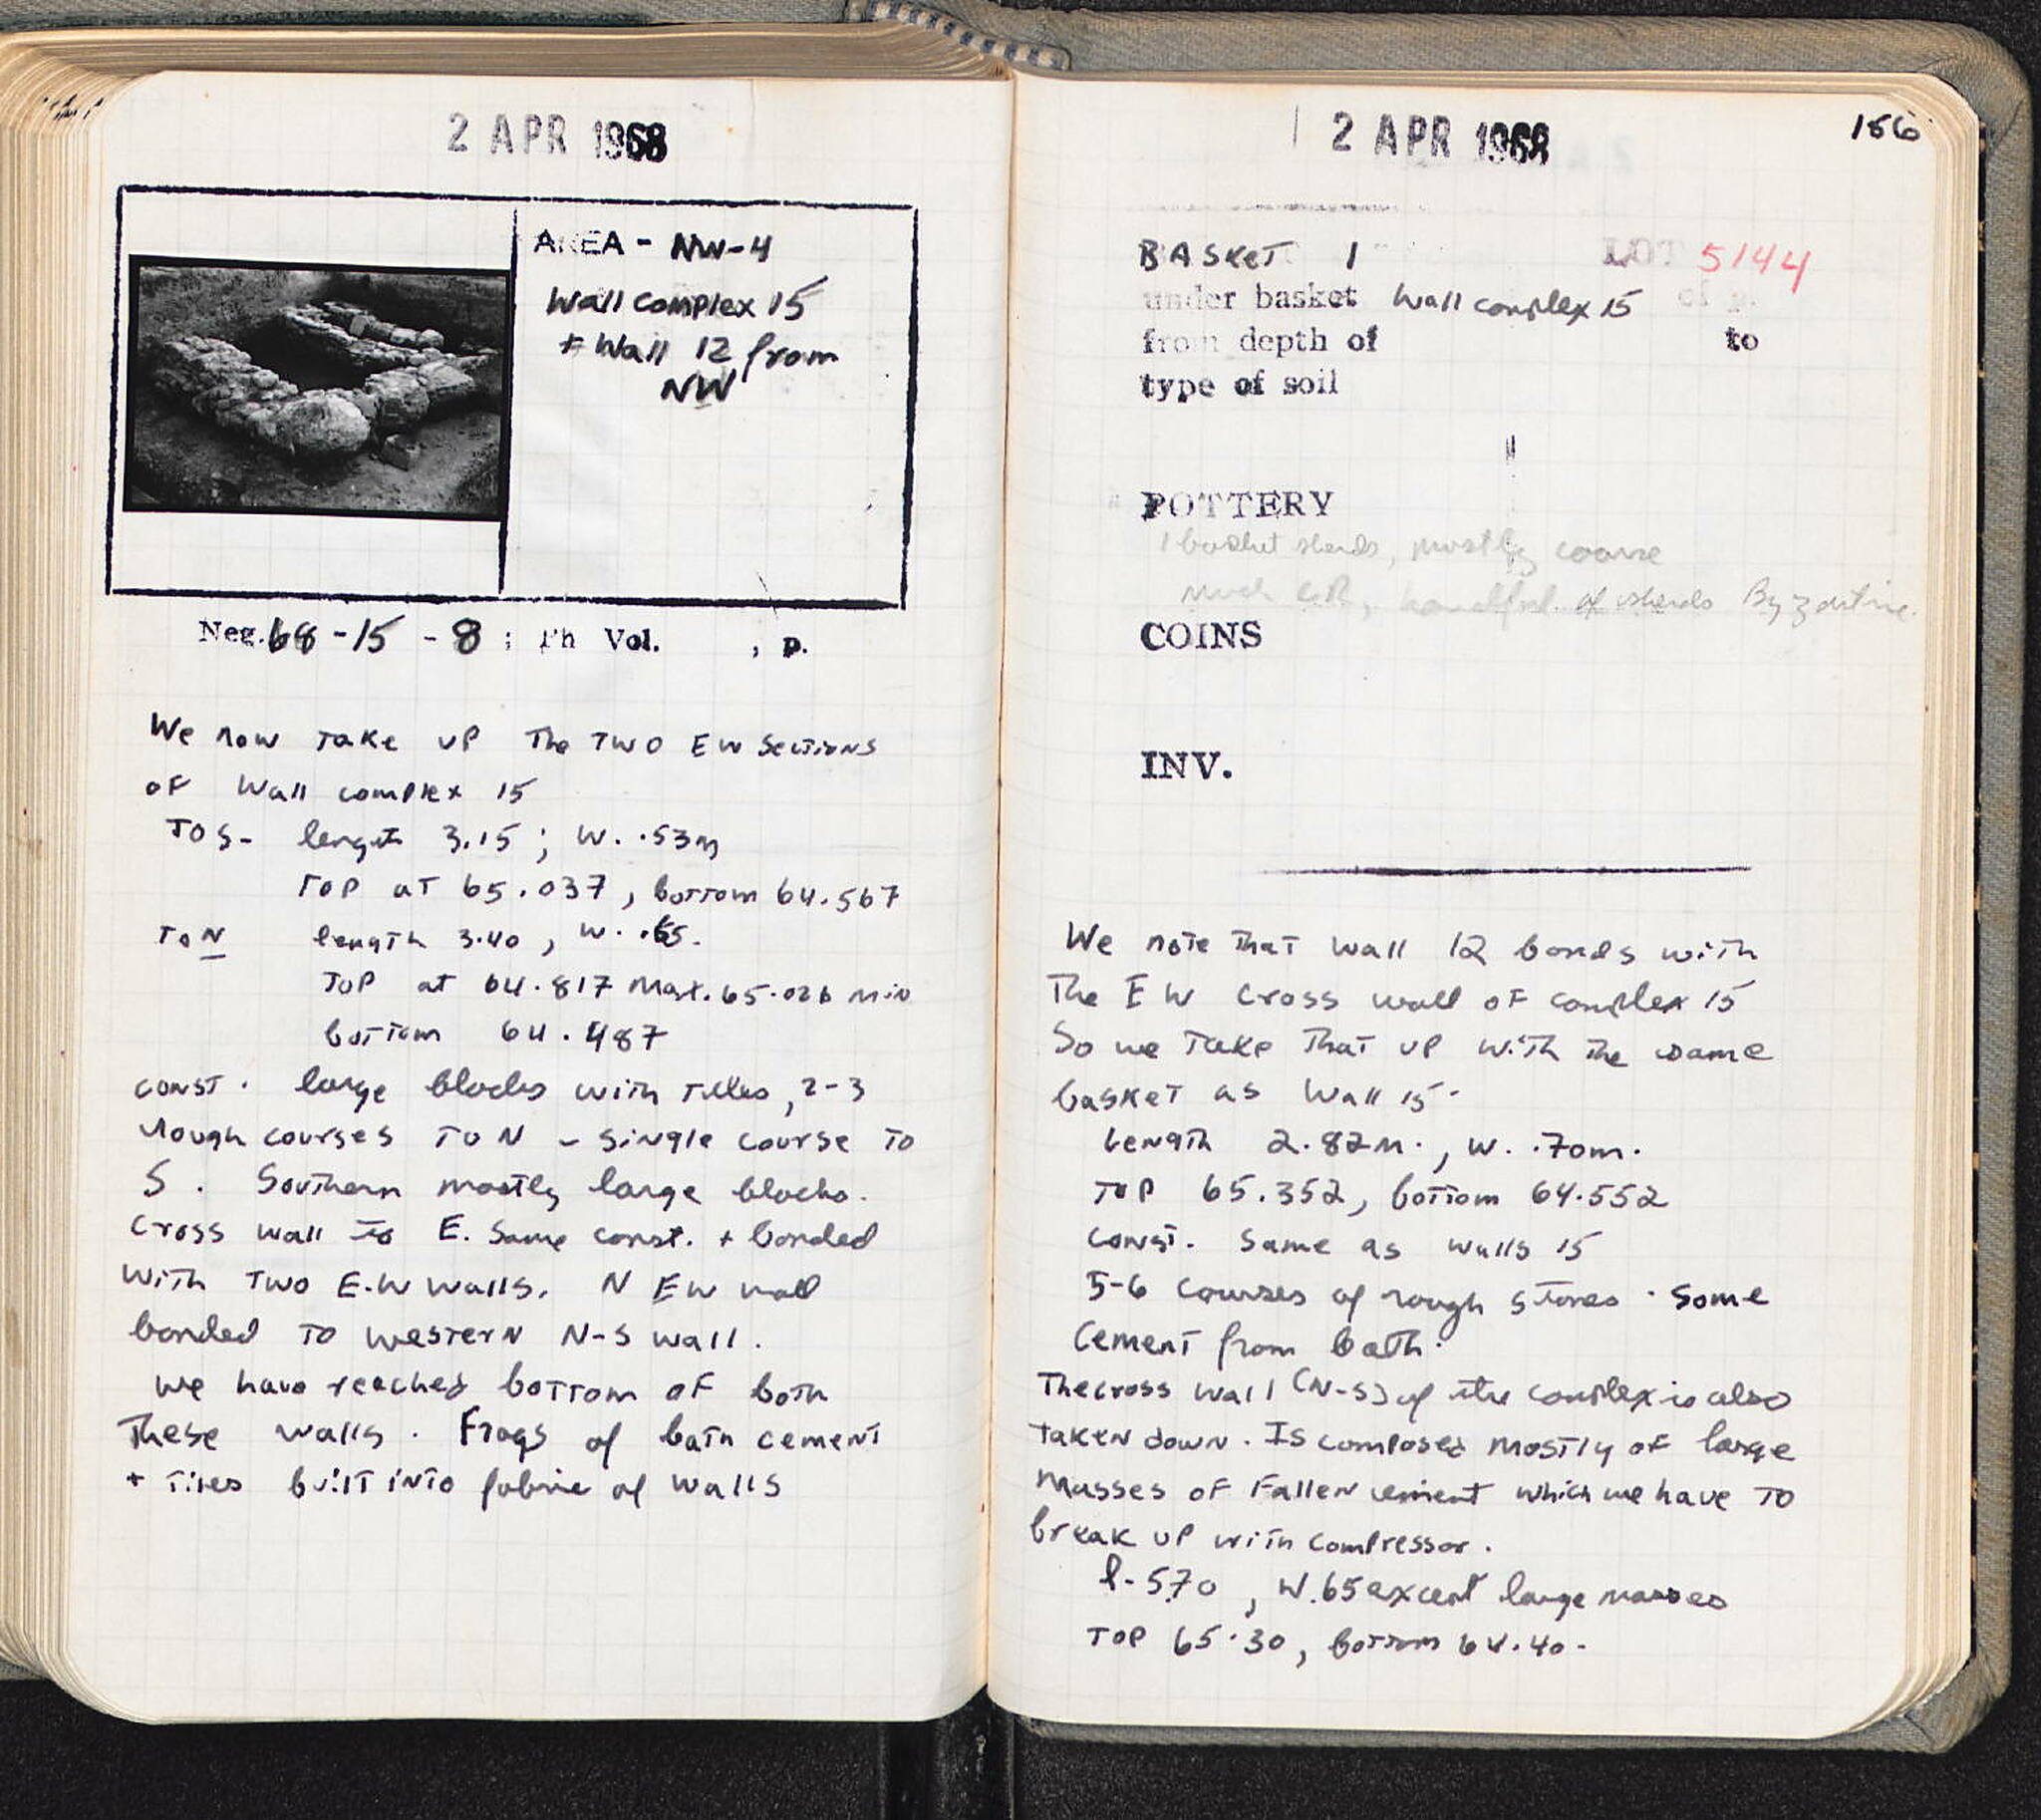 2 APR 1968
AREA - NW-4
Wall complex 15
+ Wall 12 from
NW
Neg. 68-15 - 8 ; Ph Vol. , p.
We now take up the two EW sections
of Wall complex 15
To S- length 3.15 ; w. .53m
Top at 65.037, bottom 64.567
To N length 3.40, w. .65.
Top at 64.817 Max. 65.026 Min
bottom 64.487
const. large blocks with tiles, 2-3
rough courses to N - single course to
S. Southern mostly large blocks.
Cross wall to E. Same const. + bonded
with two E-W walls. N EW wall
bonded to western N-S wall.
We have reached bottom of both
these walls. Frags of bath cement
+ tiles built into fabric of walls
2 APR 1968
156
BASKET 1 LOT 5144
under basket Wall complex 15 of p.
from depth of to
type of soil
POTTERY
1 basket sherds, mostly coarse
much LR, handful of sherds Byzantine.
COINS
INV.
We note that wall 12 bonds with
the EW cross wall of complex 15
So we take that up with the same
basket as Wall 15.
Length 2.82m., w. .70m.
Top 65.352, bottom 64.552
Const. same as walls 15
5-6 courses of rough stones. Some
cement from bath.
The cross wall (N-S) of the complex is also
taken down. Is composed mostly of large
masses of fallen cement which we have to
break up with compressor.
l-5.70, W.65 except large masses
Top 65.30, bottom 64.40.